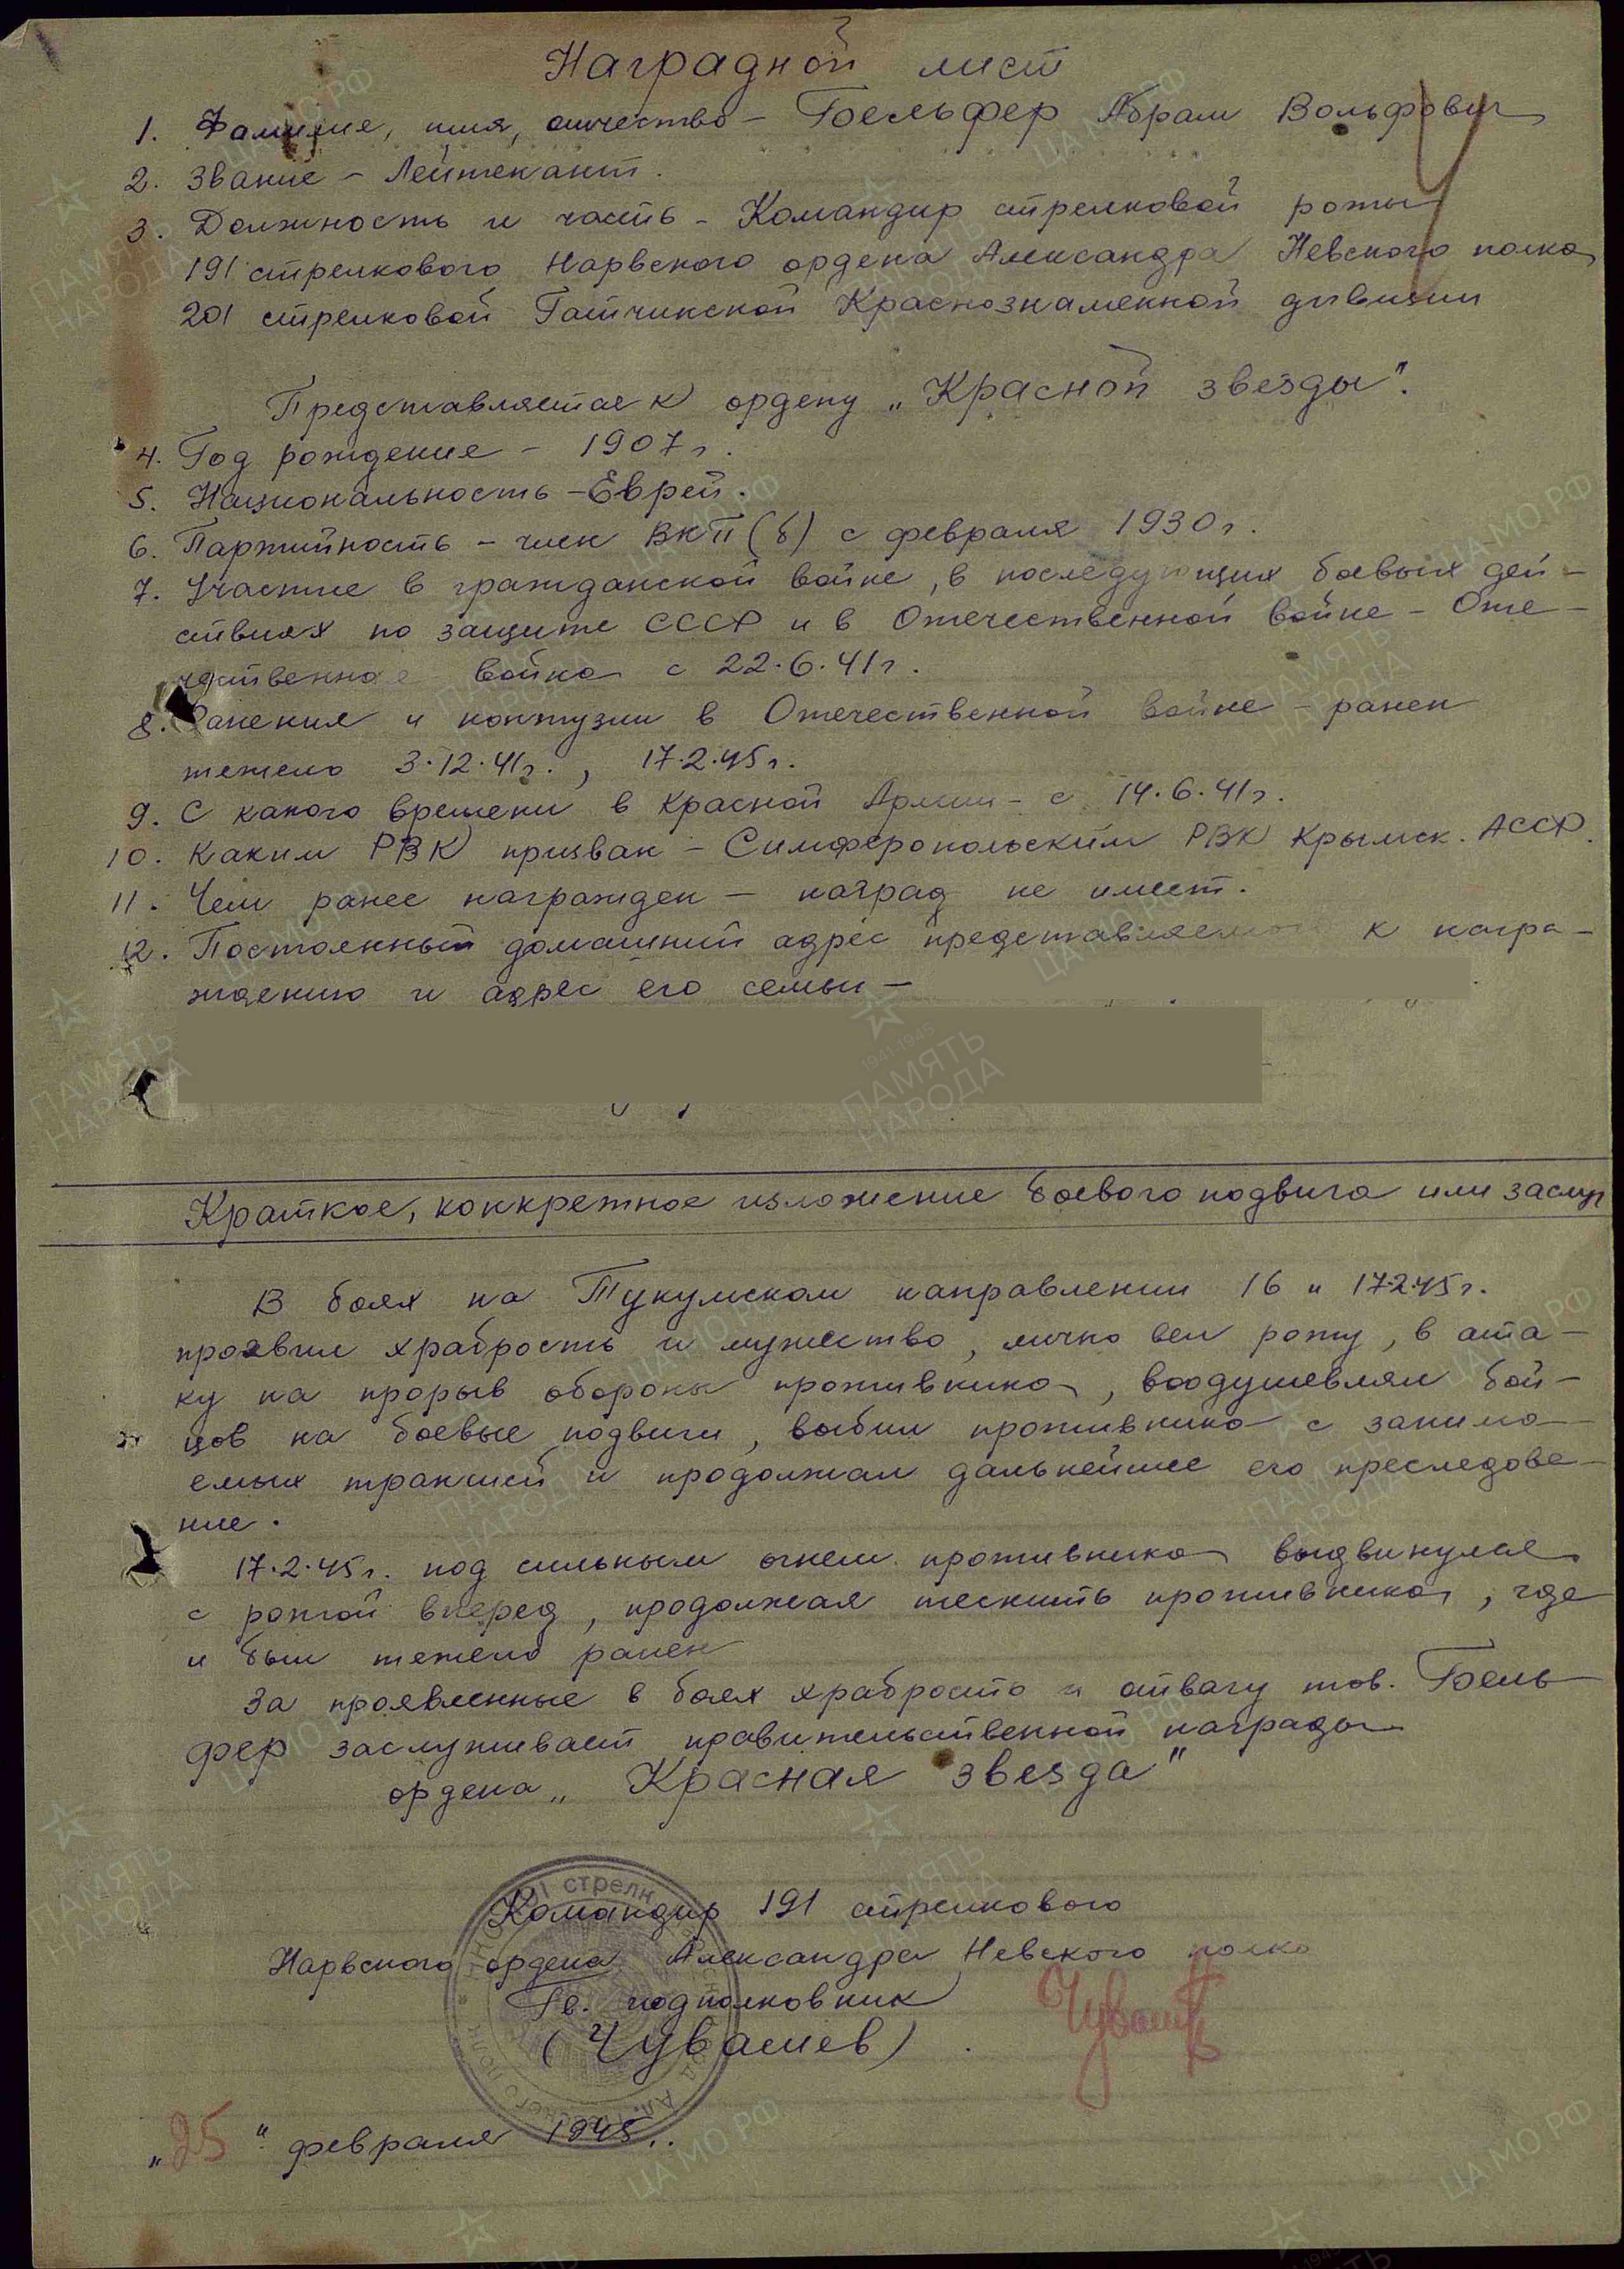 Наградной лист
1. Фамилия, имя, отчество - Бельфер Абрам Вольфович
2. Звание - Лейтенант.
3. Должность и часть - Командир стрелковой роты
191 стрелкового Нарвского ордена Александра Невского полка
201 стрелковой Гатчинской Краснознаменной дивизии
Представляется к ордену „Красной звезды".
4. Год рождения - 1907 г.
5. Национальность - Еврей.
6. Партийность - член ВКП(б) с февраля 1930 г.
7. Участие в гражданской войне, в последующих боевых дей-
ствиях по защите СССР и в Отечественной войне - Оте-
чественная война с 22.6.41 г.
8. Ранения и контузии в Отечественной войне - ранен
тяжело 3.12.41 г., 17.2.45 г.
9. С какого времени в Красной Армии - с 14.6.41 г.
10. Каким РВК призван - Симферопольским РВК Крымск. АССР.
11. Чем ранее награжден - наград не имеет.
12. Постоянный домашний адрес представляемого к награ-
ждению и адрес его семьи -
Краткое, конкретное изложение боевого подвига или заслуг
В боях на Тукумском направлении 16 и 17.2.45 г.
проявил храбрость и мужество, лично вел роту, в ата-
ку на прорыв обороны противника, воодушевлял бой-
цов на боевые подвиги, выбил противника с занима-
емых траншей и продолжал дальнейшее его преследова-
ние.
17.2.45 г. под сильным огнем противника выдвинулся
с ротой вперед, продолжая теснить противника, где
и был тяжело ранен
За проявленные в боях храбрость и отвагу тов. Бель-
фер заслуживает правительственной награды
ордена „Красная звезда"
Командир 191 стрелкового
Нарвского ордена Александра Невского полка
Гв. подполковник
(Чувашев)
„25" февраля 1945 г.